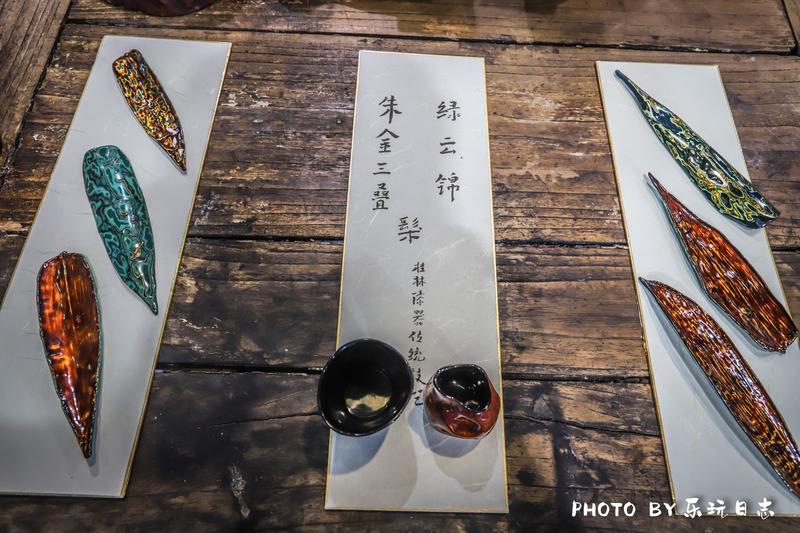 绿云锦
朱金三叠
髹
桂林漆器传统技艺
PHOTO BY乐玩日志